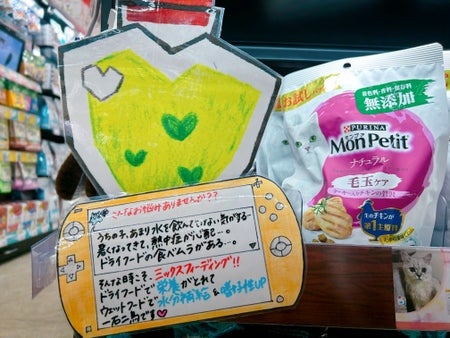 こんなお悩みありませんか??
うちの子、あまり水を飲んでいない気がする…
暑くなってきて、熱中症が心配…。
ドライフードの食べムラがある…。
そんな時こそ、ミックスフィーディング!!
ドライフードで栄養がとれて
ウェットフードで水分補給&嗜好性UP
一石二鳥です♥
お試し
着色料・香料・保存料
無添加
PURINA
MonPetit
ナチュラル
毛玉ケア
生のチキンが
第1主原料